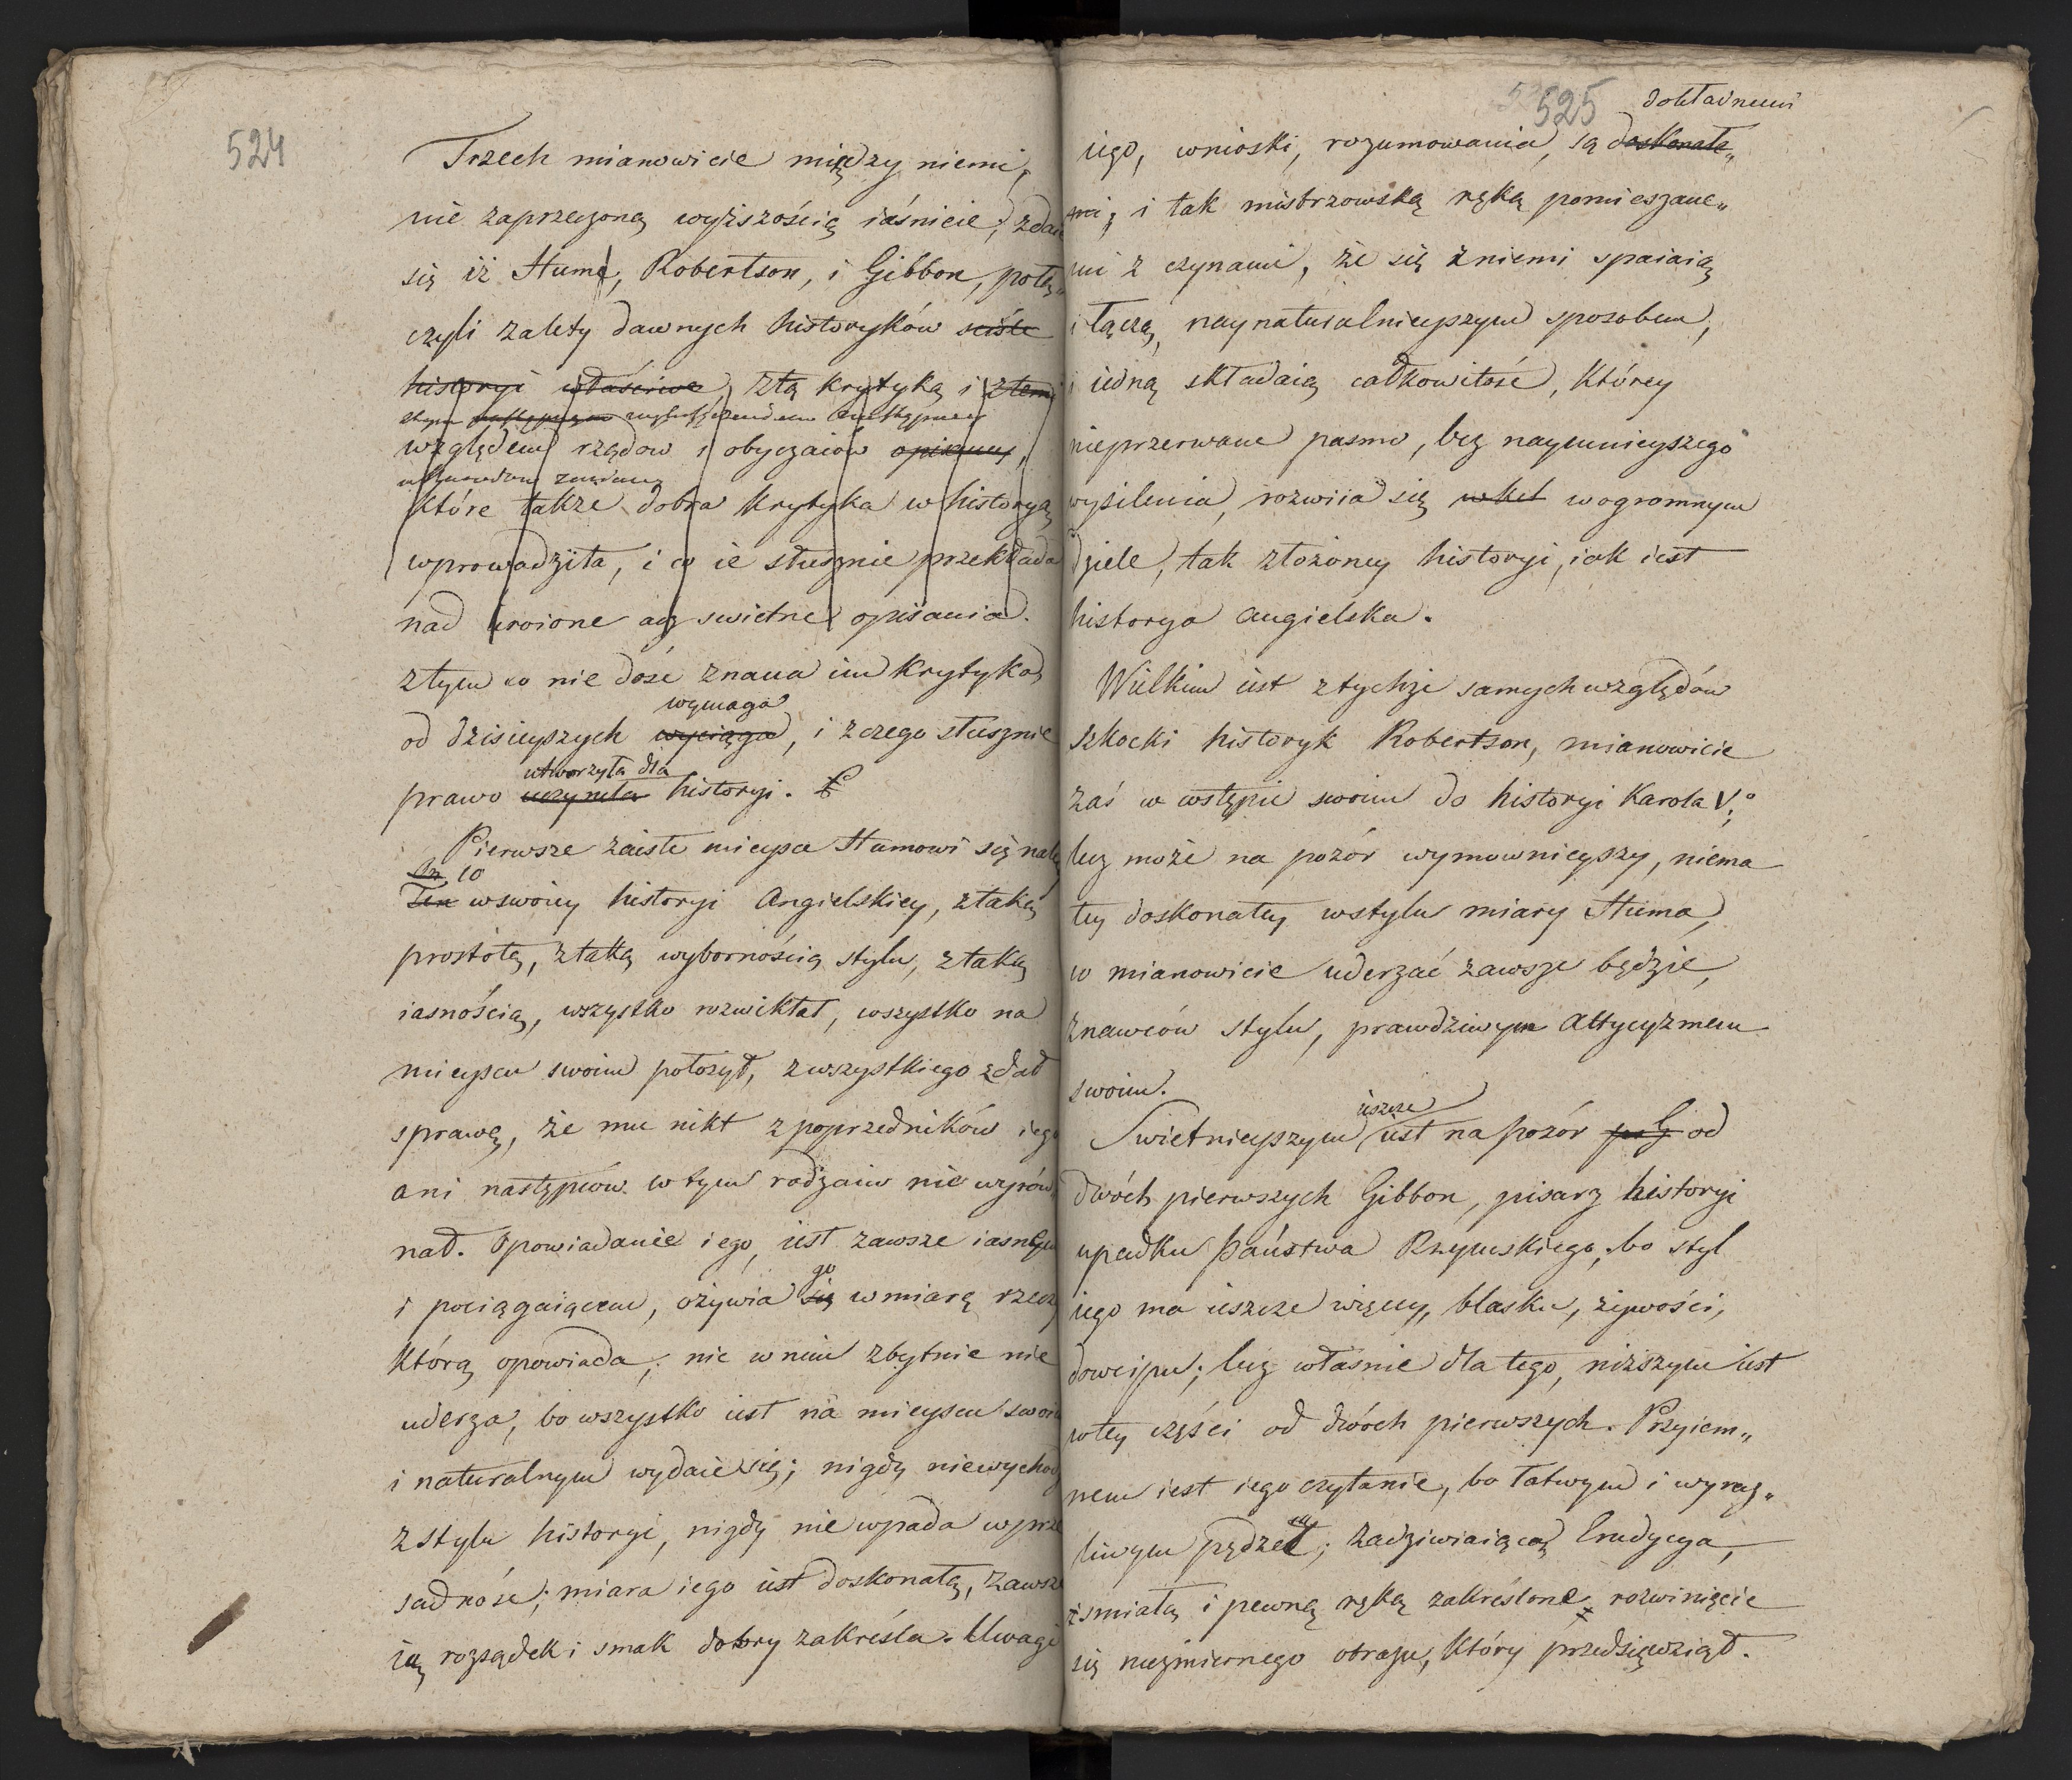 524
Trzech mianowicie między niemi,
nie zaprzeczoną wyższością iaśnieie; zdaie
się iż Hume, Robertson, i Gibbon, połą„
czyli zalety dawnych historyków ściśle
historyi właściwe, ztą krytyką i ztem
względem rządow i obyczaiów opisany,
które także dobra krytyka w historyą
wprowadziła, i co ie słusznie przekłada
nad kroione acz swietne opisania.
ztym co nie dość znana im krytyka
wymaga
od dzisieyszych wyciąga, i zczego słusznie
utworzyła dla
prawo uczyniła historyi.
Pierwsze zaiste mieysce Humowi się należy
On 10
Ten wswoiey historyi Angielskiey, ztaką
prostotą, ztaką wybornością stylu, ztaką
iasnością, wszystko rozwikłał, wszystko na
mieyscu swoim położył, zwszystkiego zdał
sprawę, że mu nikt zpoprzedników iego
ani następców wtym rodzaiu nie wyrów„
nał. Opowiadanie iego, iest zawsze iasnym
go
i pociągaiącem, ożywia się wmiarę rzeczy
którą opowiada; nic wnim zbytnie nie
uderza, bo wszystko iest na mieyscu swoim
i naturalnym wydaie się; nigdy niewychodzi
zstylu historyi, nigdy nie wpada wprze
sadność; miara iego iest doskonałą, zawsze
ią rozsądek i smak dobry zakreśla. Uwagi
525 dokładnemi
iego, wnioski, rozumowania, są doskonałe„
mi; i tak mistrzowską ręką pomieszane„
mi z czynami, że się zniemi spaiaią
i łączą, naynaturalnieyszym sposobem,
i iedną składaią całkowitość, którey
nieprzerwane pasmo, bez naymnieyszego
wysilenia, rozwiia się wkit wogromnym
dziele, tak złożoney historyi, iak iest
historya angielska.
Wielkim iest ztychże samych względów
szkocki historyk Robertson, mianowicie
zaś w wstępie swoim do historyi Karola V.°
lecz może na pozór wymownieyszy, niema
tey doskonałey wstylu miary Huma,
co mianowicie uderzać zawsze będzie,
znawców stylu, prawdziwym attycyzmem
swoim.
ieszcze
Swietnieyszym iest na pozór od
dwóch pierwszych Gibbon, pisarz historyi
upadku Państwa Rzymskiego, bo styl
iego ma ieszcze więcey, blasku, żywości,
dowcipu; lecz właśnie dla tego, niższym iest
wtey części od dwóch pierwszych. Przyiem„
nem iest iego czytanie, bo łatwym i wyraź„
liwym pędzel; zadziwiaiącą Erudycya,
i smiałą i pewną ręką zakreslone rozwinięcie
się niezmiernego obrazu, który przedsięwziął.